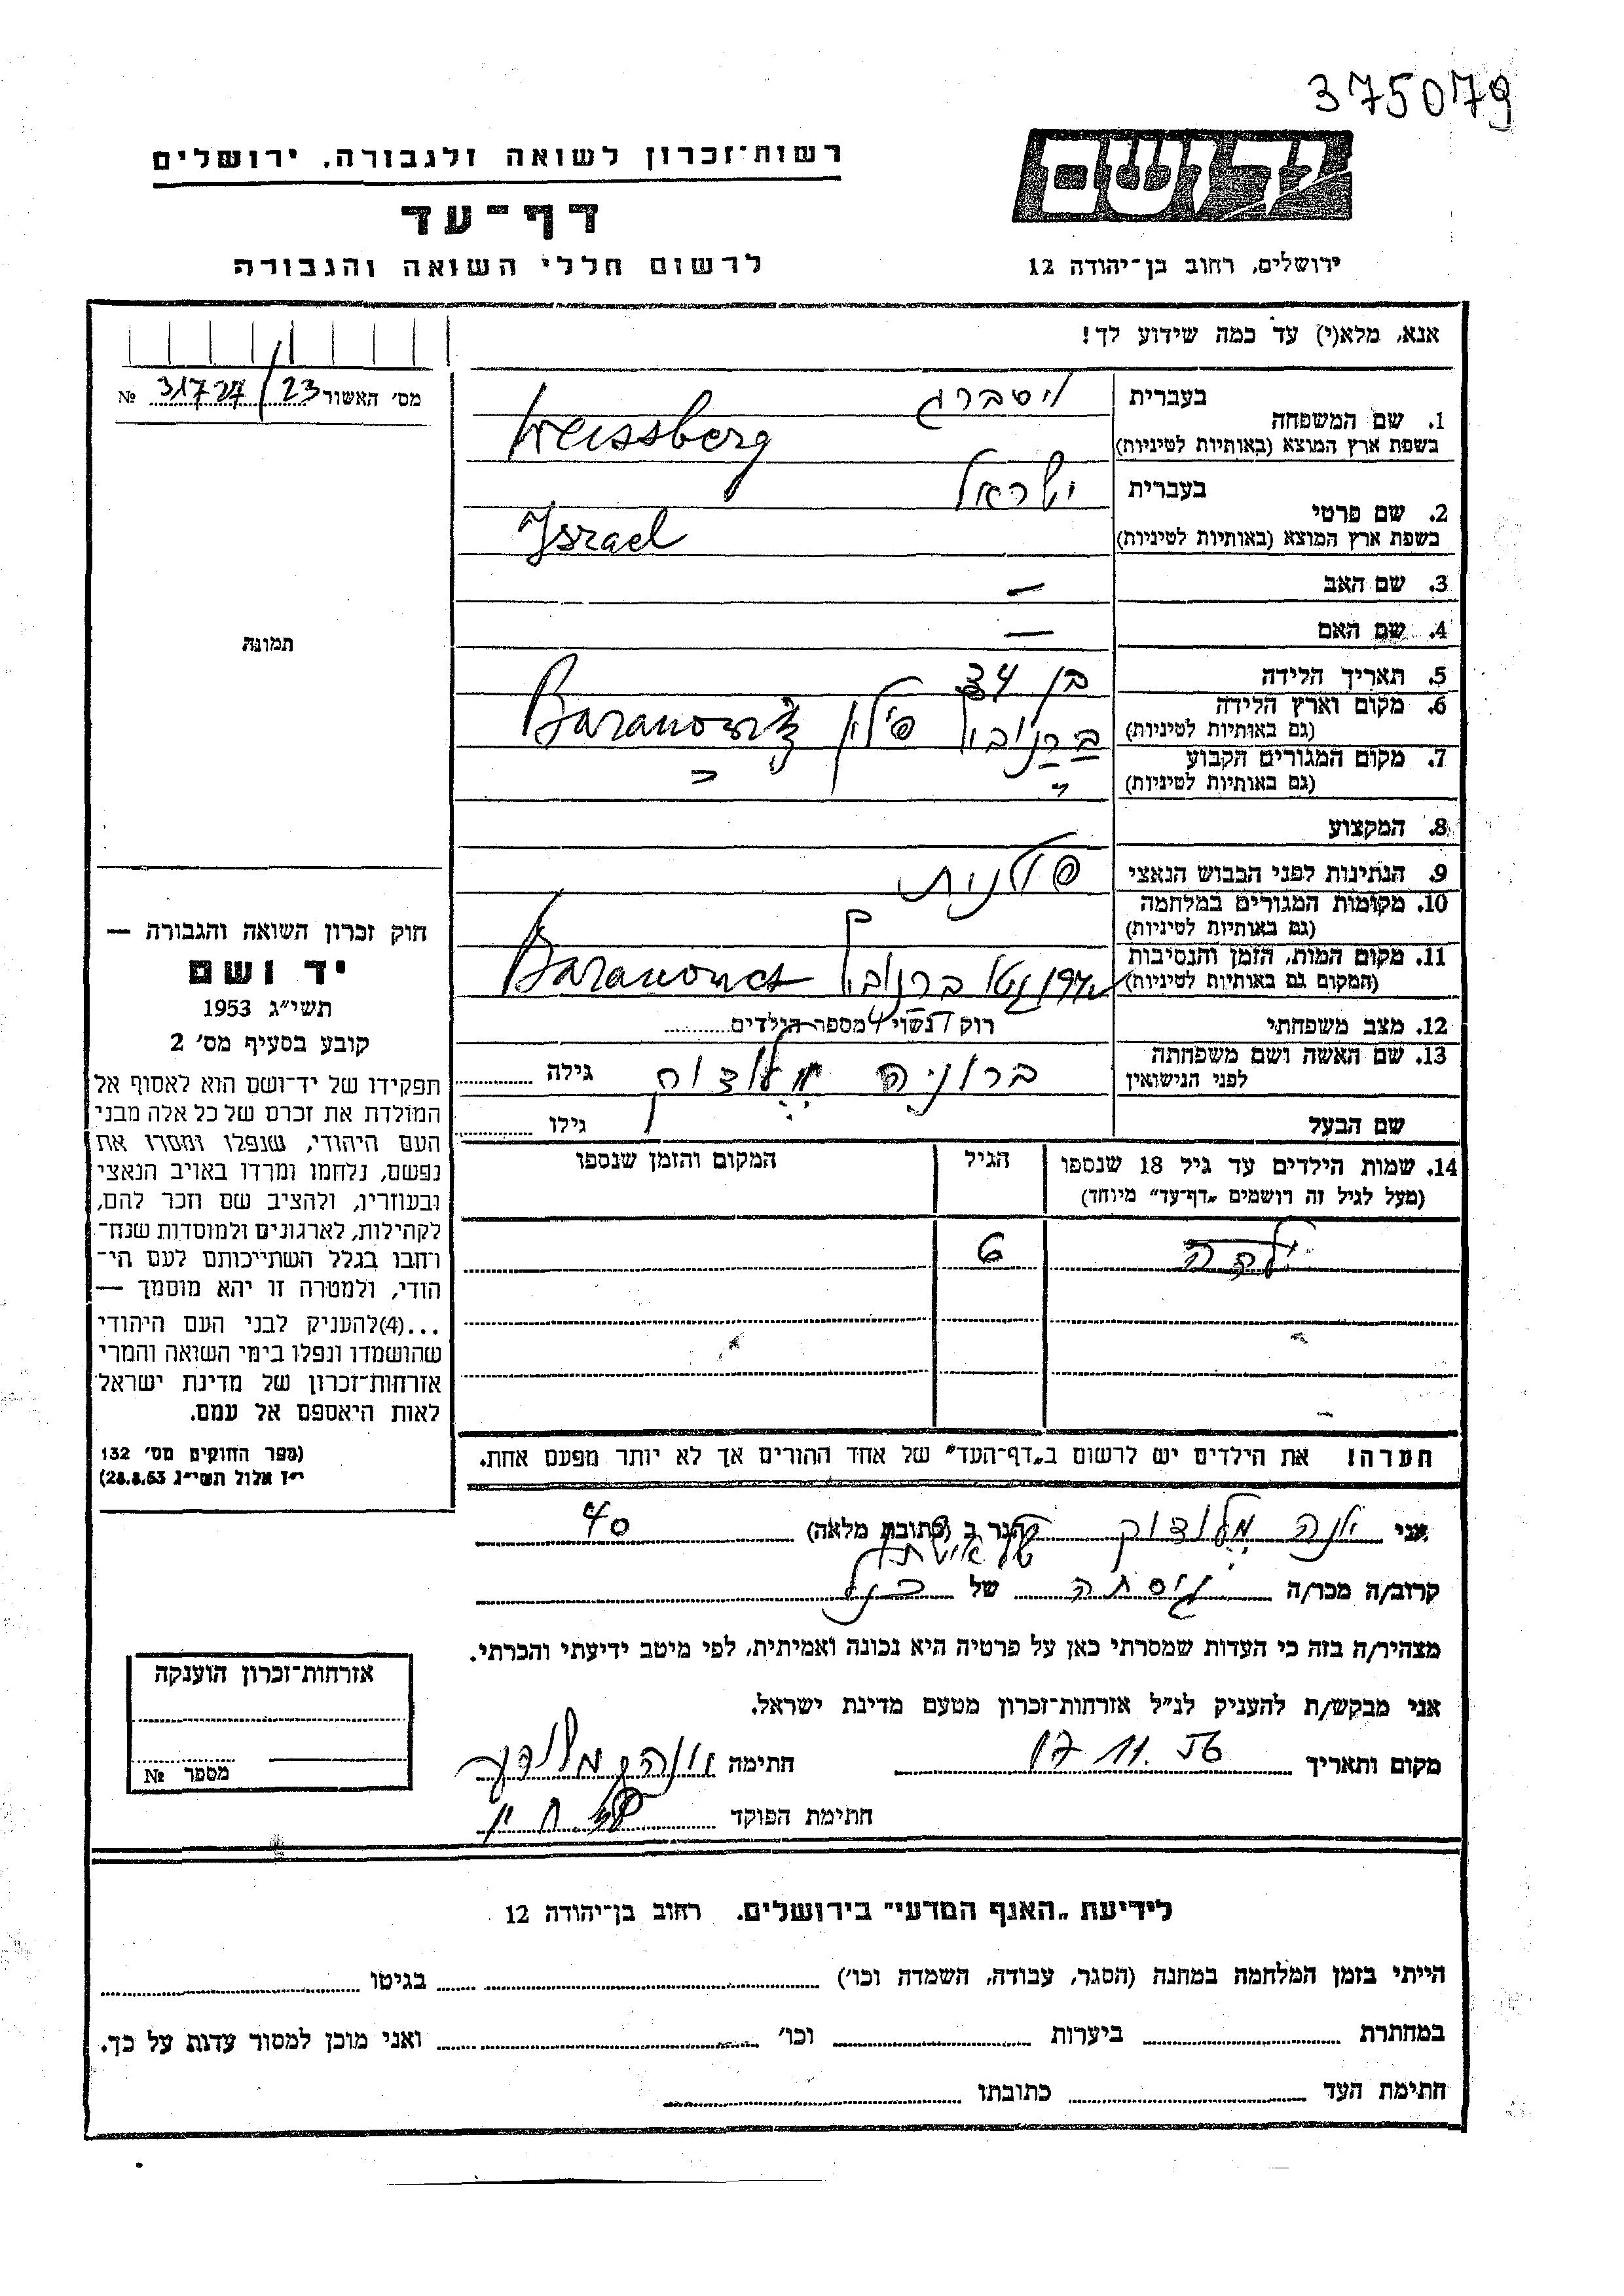 375079
יד ושם
רשות־זכרון לשואה ולגבורה, ירושלים
דף־עד
לרשום חללי השואה והגבורה
ירושלים, רחוב בן־יהודה 12
אנא, מלא(י) עד כמה שידוע לך!
מס׳ האשור 31727/23 №
תמונה
בעברית ויסברג
1. שם המשפחה
בשפת ארץ המוצא (באותיות לטיניות) Weissberg
בעברית ישראל
2. שם פרטי
בשפת ארץ המוצא (באותיות לטיניות) Israel
3. שם האב —
4. שם האם —
5. תאריך הלידה בן 34
6. מקום וארץ הלידה
(גם באותיות לטיניות) פולין
7. מקום המגורים הקבוע
(גם באותיות לטיניות)
8. המקצוע
9. הנתינות לפני הכבוש הנאצי פולנית
10. מקומות המגורים במלחמה
(גם באותיות לטיניות)
11. מקום המות, הזמן והנסיבות
(המקום גם באותיות לטיניות)
12. מצב משפחתי רווק / נשוי / מספר הילדים
13. שם האשה ושם משפחתה
לפני הנישואין ברוניה גילה
שם הבעל גילו
14. שמות הילדים עד גיל 18 שנספו הגיל המקום והזמן שנספו
(מעל לגיל זה רושמים „דף־עד״ מיוחד)
ילדה 6
הערה! את הילדים יש לרשום ב„דף־העד״ של אחד ההורים אך לא יותר מפעם אחת.
חוק זכרון השואה והגבורה —
יד ושם
תשי״ג 1953
קובע בסעיף מס׳ 2
תפקידו של יד־ושם הוא לאסוף אל
המולדת את זכרם של כל אלה מבני
העם היהודי, שנפלו ומסרו את
נפשם, נלחמו ומרדו באויב הנאצי
ובעוזריו, ולהציב שם וזכר להם,
לקהילות, לארגונים ולמוסדות שנח־
רבו בגלל השתייכותם לעם הי־
הודי, ולמטרה זו יהא מוסמך —
...(4)להעניק לבני העם היהודי
שהושמדו ונפלו בימי השואה והמרי
אזרחות־זכרון של מדינת ישראל
לאות היאספם אל עמם.
(ספר החוקים מס׳ 132
י״ז אלול תשי״ג 28.8.53)
אני הגר ב (כתובת מלאה) 40
קרוב/ה מכר/ה גיסתה של
מצהיר/ה בזה כי העדות שמסרתי כאן על פרטיה היא נכונה ואמיתית, לפי מיטב ידיעתי והכרתי.
אני מבקש/ת להעניק לנ״ל אזרחות־זכרון מטעם מדינת ישראל.
מקום ותאריך 17 11. 56 חתימה
חתימת הפוקד
אזרחות־זכרון הוענקה
מספר №
לידיעת „האגף המדעי״ בירושלים. רחוב בן־יהודה 12
הייתי בזמן המלחמה במחנה (הסגר, עבודה, השמדה וכו׳) בגיטו
במחתרת ביערות וכו׳ ואני מוכן למסור עדות על כך.
חתימת העד כתובתו